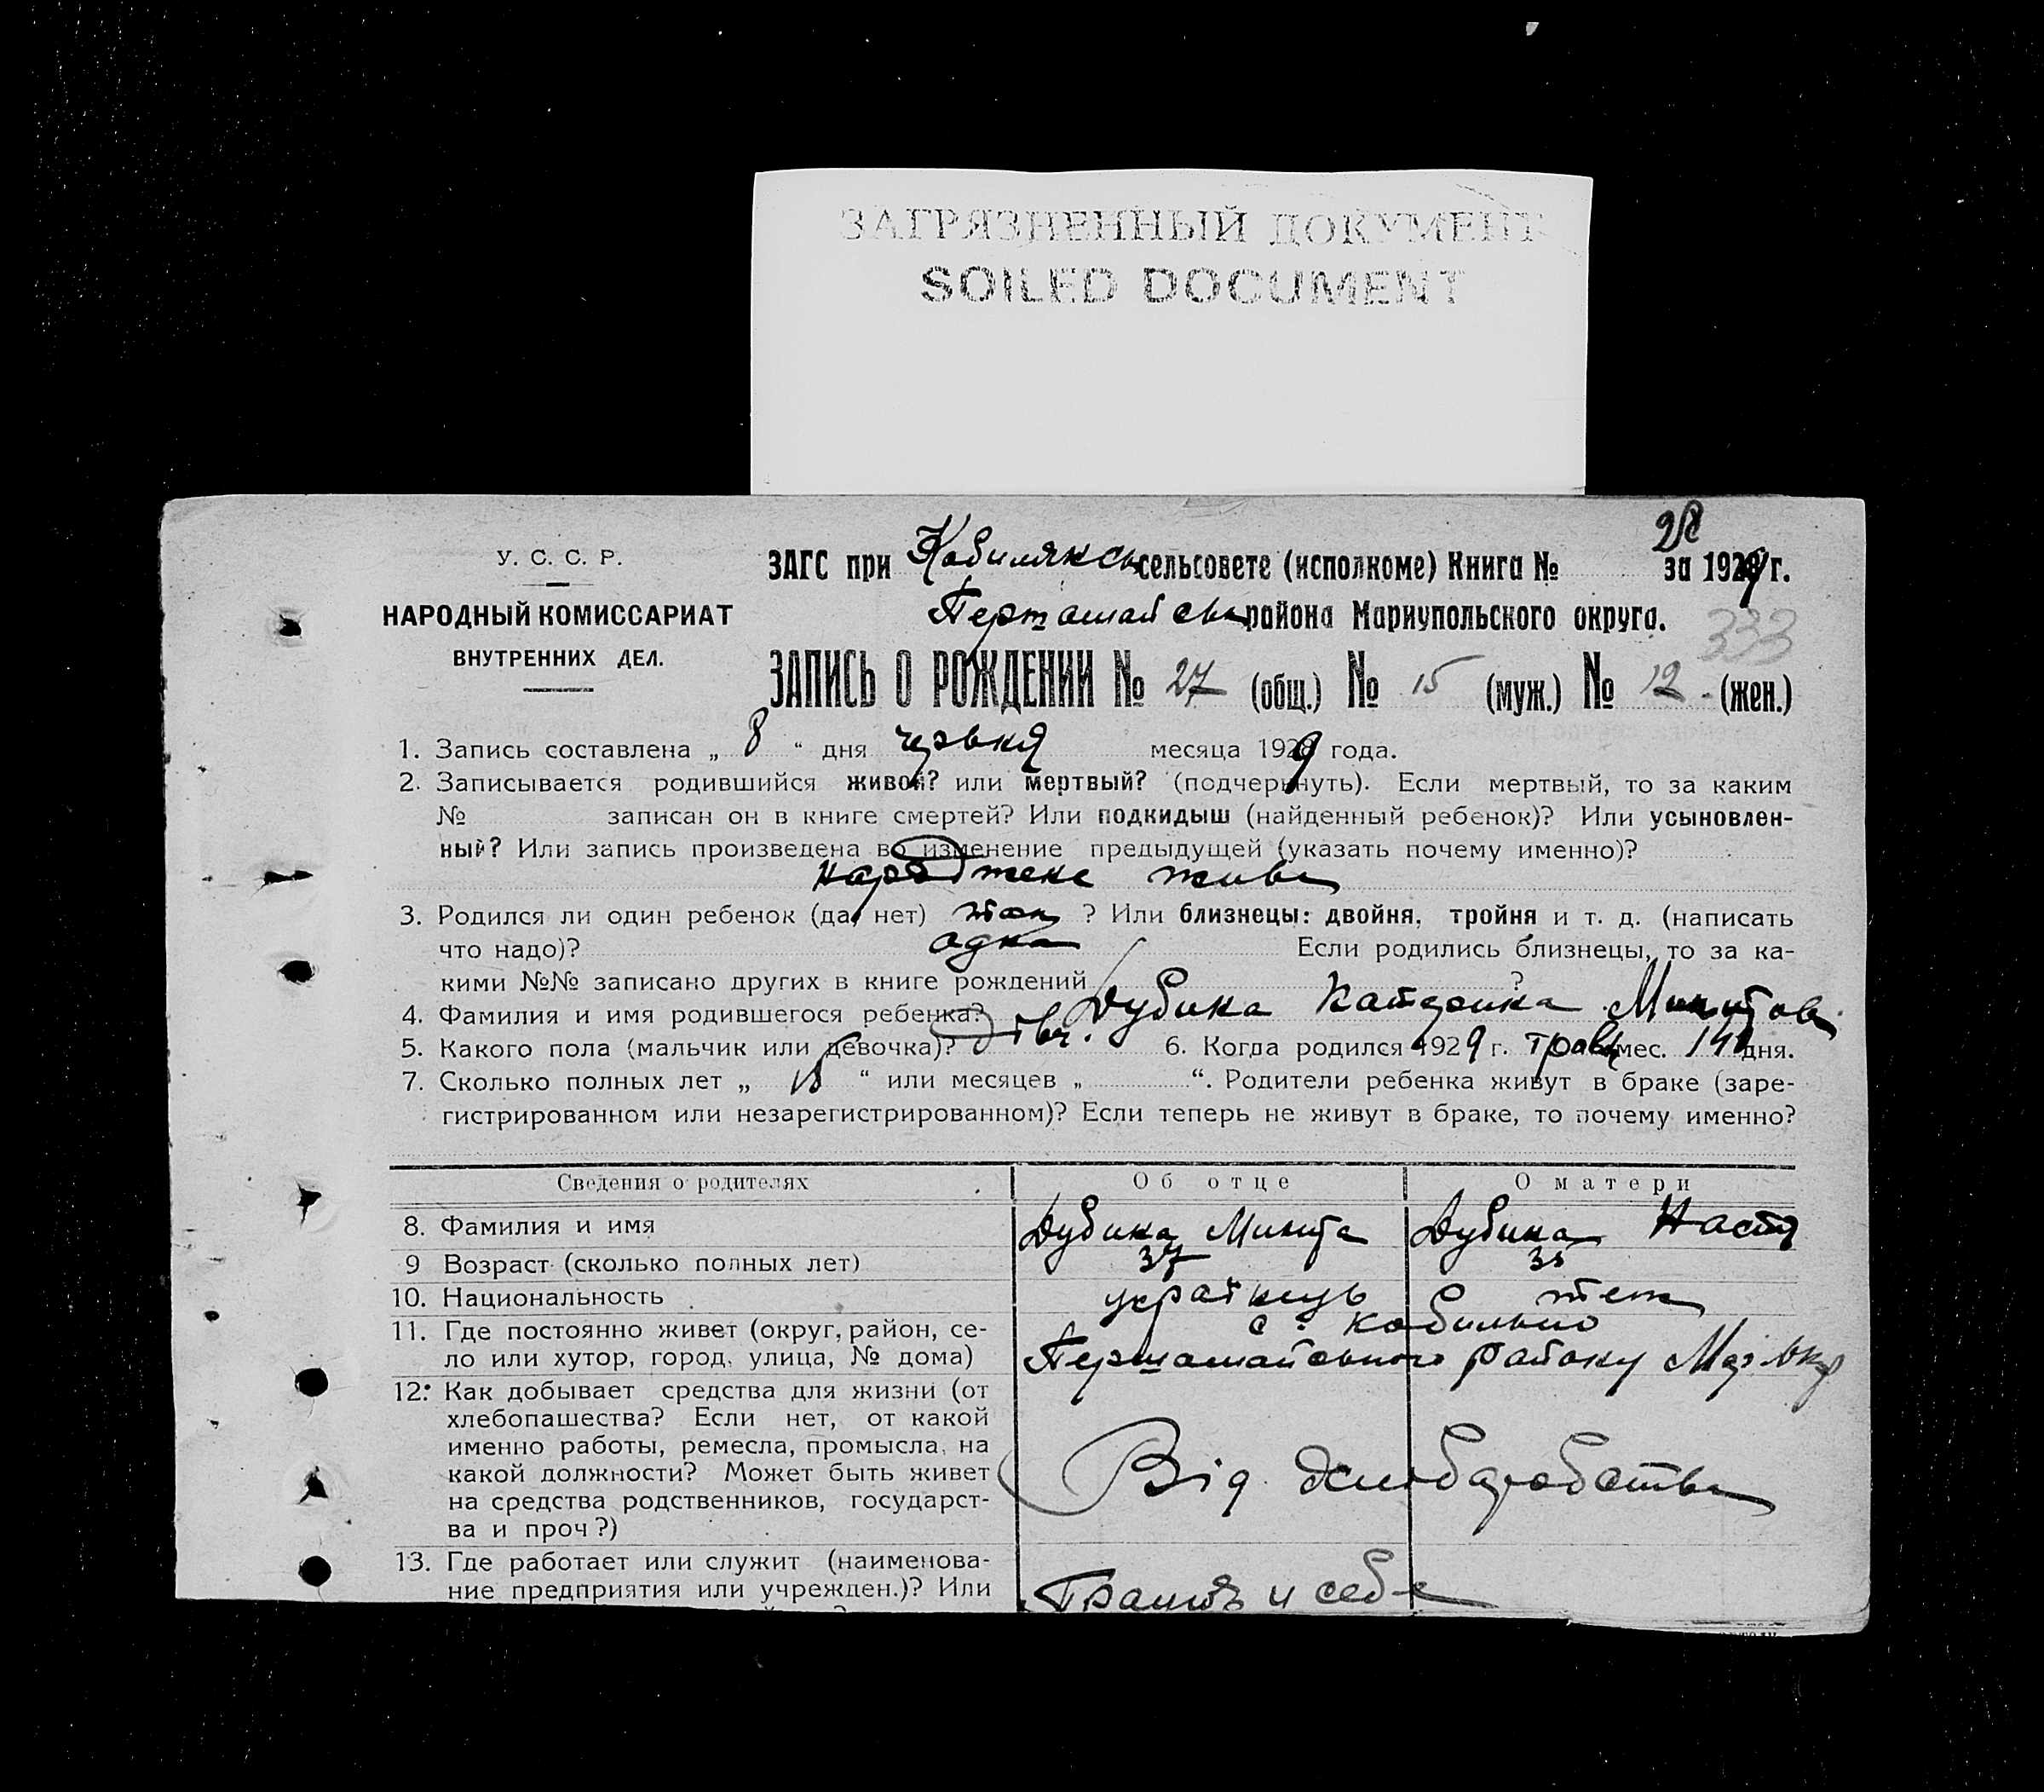 ЗАГРЯЗНЕННЫЙ ДОКУМЕНТ
SOILED DOCUMENT
28
У. С. С. Р.
НАРОДНЫЙ КОМИССАРИАТ
ВНУТРЕННИХ ДЕЛ.
ЗАГС при сельсовете (исполкоме) Книга № за 1929 г.
района Мариупольского округа.
333
ЗАПИСЬ О РОЖДЕНИИ № 27 (общ.) № 15 (муж.) № 12 (жен.)
1. Запись составлена „ 8 “ дня червня месяца 1929 года.
2. Записывается родившийся живой? или мертвый? (подчеркнуть). Если мертвый, то за каким
№ записан он в книге смертей? Или подкидыш (найденный ребенок)? Или усыновлен-
ный? Или запись произведена во изменение предыдущей (указать почему именно)?
живе
3. Родился ли один ребенок (да, нет) так ? Или близнецы: двойня, тройня и т. д. (написать
что надо)? одна Если родились близнецы, то за ка-
кими №№ записано других в книге рождений ?
4. Фамилия и имя родившегося ребенка? Дубина Катерина Микитов
5. Какого пола (мальчик или девочка)? дівч. 6. Когда родился 1929 г. трав мес. дня.
7. Сколько полных лет „ “ или месяцев „ “. Родители ребенка живут в браке (заре-
гистрированном или незарегистрированном)? Если теперь не живут в браке, то почему именно?
Сведения о родителях Об отце О матери
8. Фамилия и имя Дубина Микита Дубина Настя
9 Возраст (сколько полных лет) 37
10. Национальность українець теж
11. Где постоянно живет (округ, район, се- с.
ло или хутор, город, улица, № дома) Першамайського району
12. Как добывает средства для жизни (от
хлебопашества? Если нет, от какой
именно работы, ремесла, промысла, на
какой должности? Может быть живет Від
на средства родственников, государст-
ва и проч?)
13. Где работает или служит (наименова-
ние предприятия или учрежден.)? Или у себе